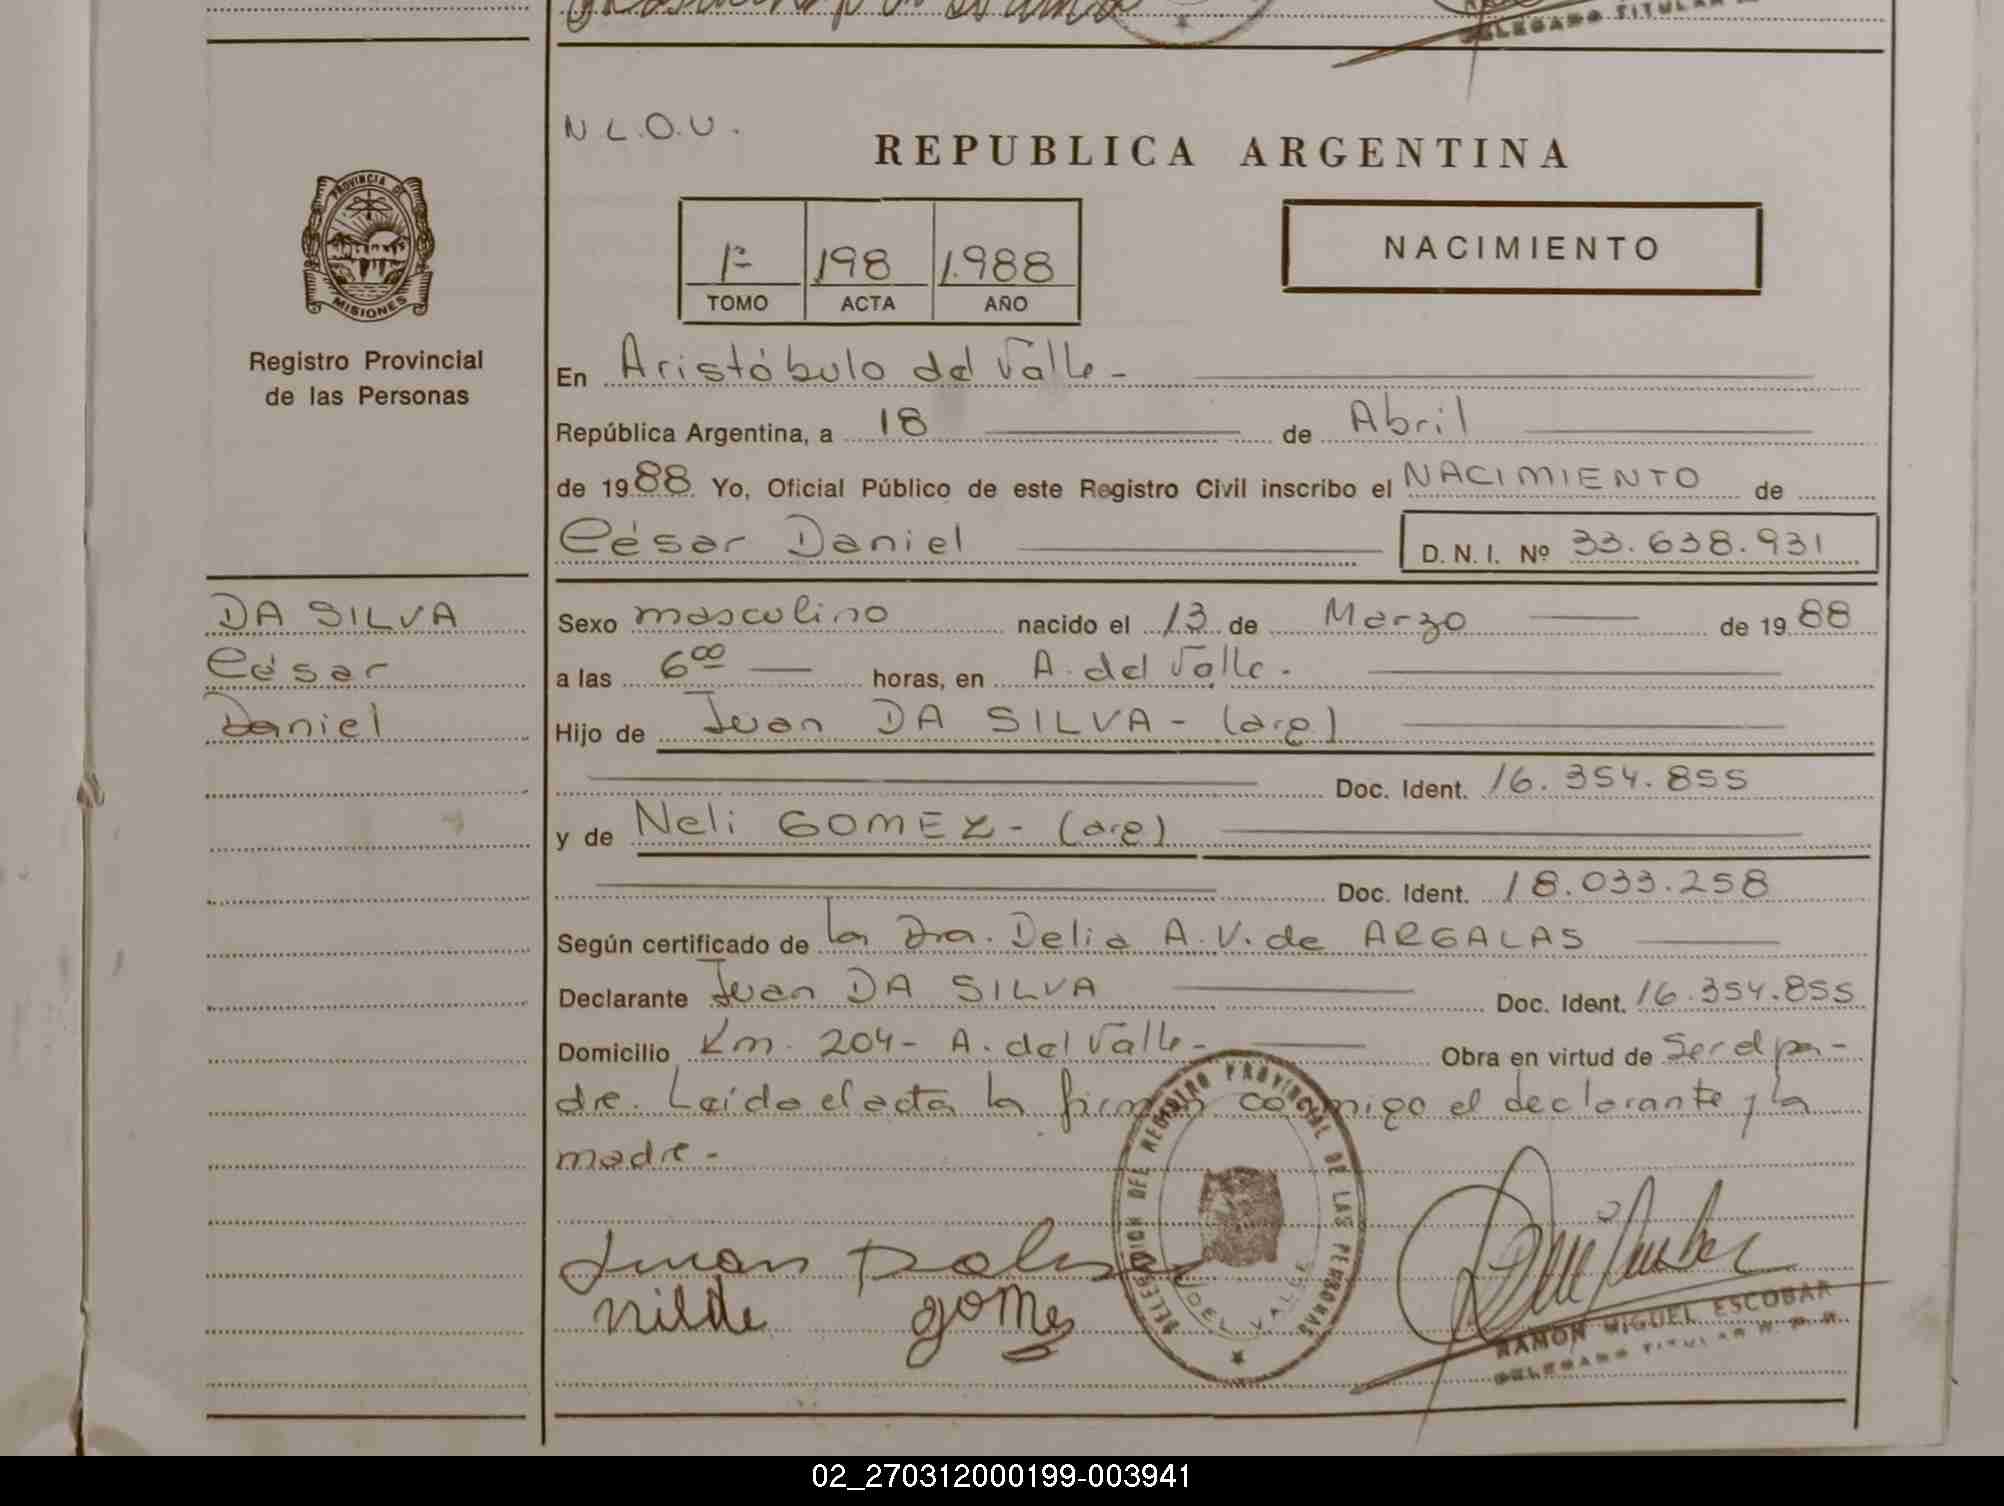 DELEGADO TITULAR
N L.O.U.
REPUBLICA ARGENTINA
PROVINCIA DE
MISIONES
1º 198 1.988
TOMO ACTA AÑO
NACIMIENTO
Registro Provincial
de las Personas
En Aristóbulo del Valle -
República Argentina, a 18 de Abril
de 1988. Yo, Oficial Público de este Registro Civil inscribo el NACIMIENTO de
César Daniel D. N. I. Nº 33.638.931
DA SILVA
César
Daniel
Sexo masculino nacido el 13 de Marzo de 19 88
a las 6 00 horas, en A. del Valle -
Hijo de Juan DA SILVA - (arg)
Doc. Ident. 16.354.855
y de Neli GOMEZ - (arg)
Doc. Ident. 18.033.258
Según certificado de la Dra. Delia A. V. de ARGALAS
Declarante Juan DA SILVA Doc. Ident. 16.354.855
Domicilio Km. 204 - A. del Valle - Obra en virtud de Ser el pa-
dre. Leída el acta la firman conmigo el declarante y la
madre -
DELEGACION DEL REGISTRO PROVINCIAL DE LAS PERSONAS
DEL VALLE
Juan
nilde gomes
RAMON MIGUEL ESCOBAR
DELEGADO TITULAR R. P. P.
02_270312000199-003941